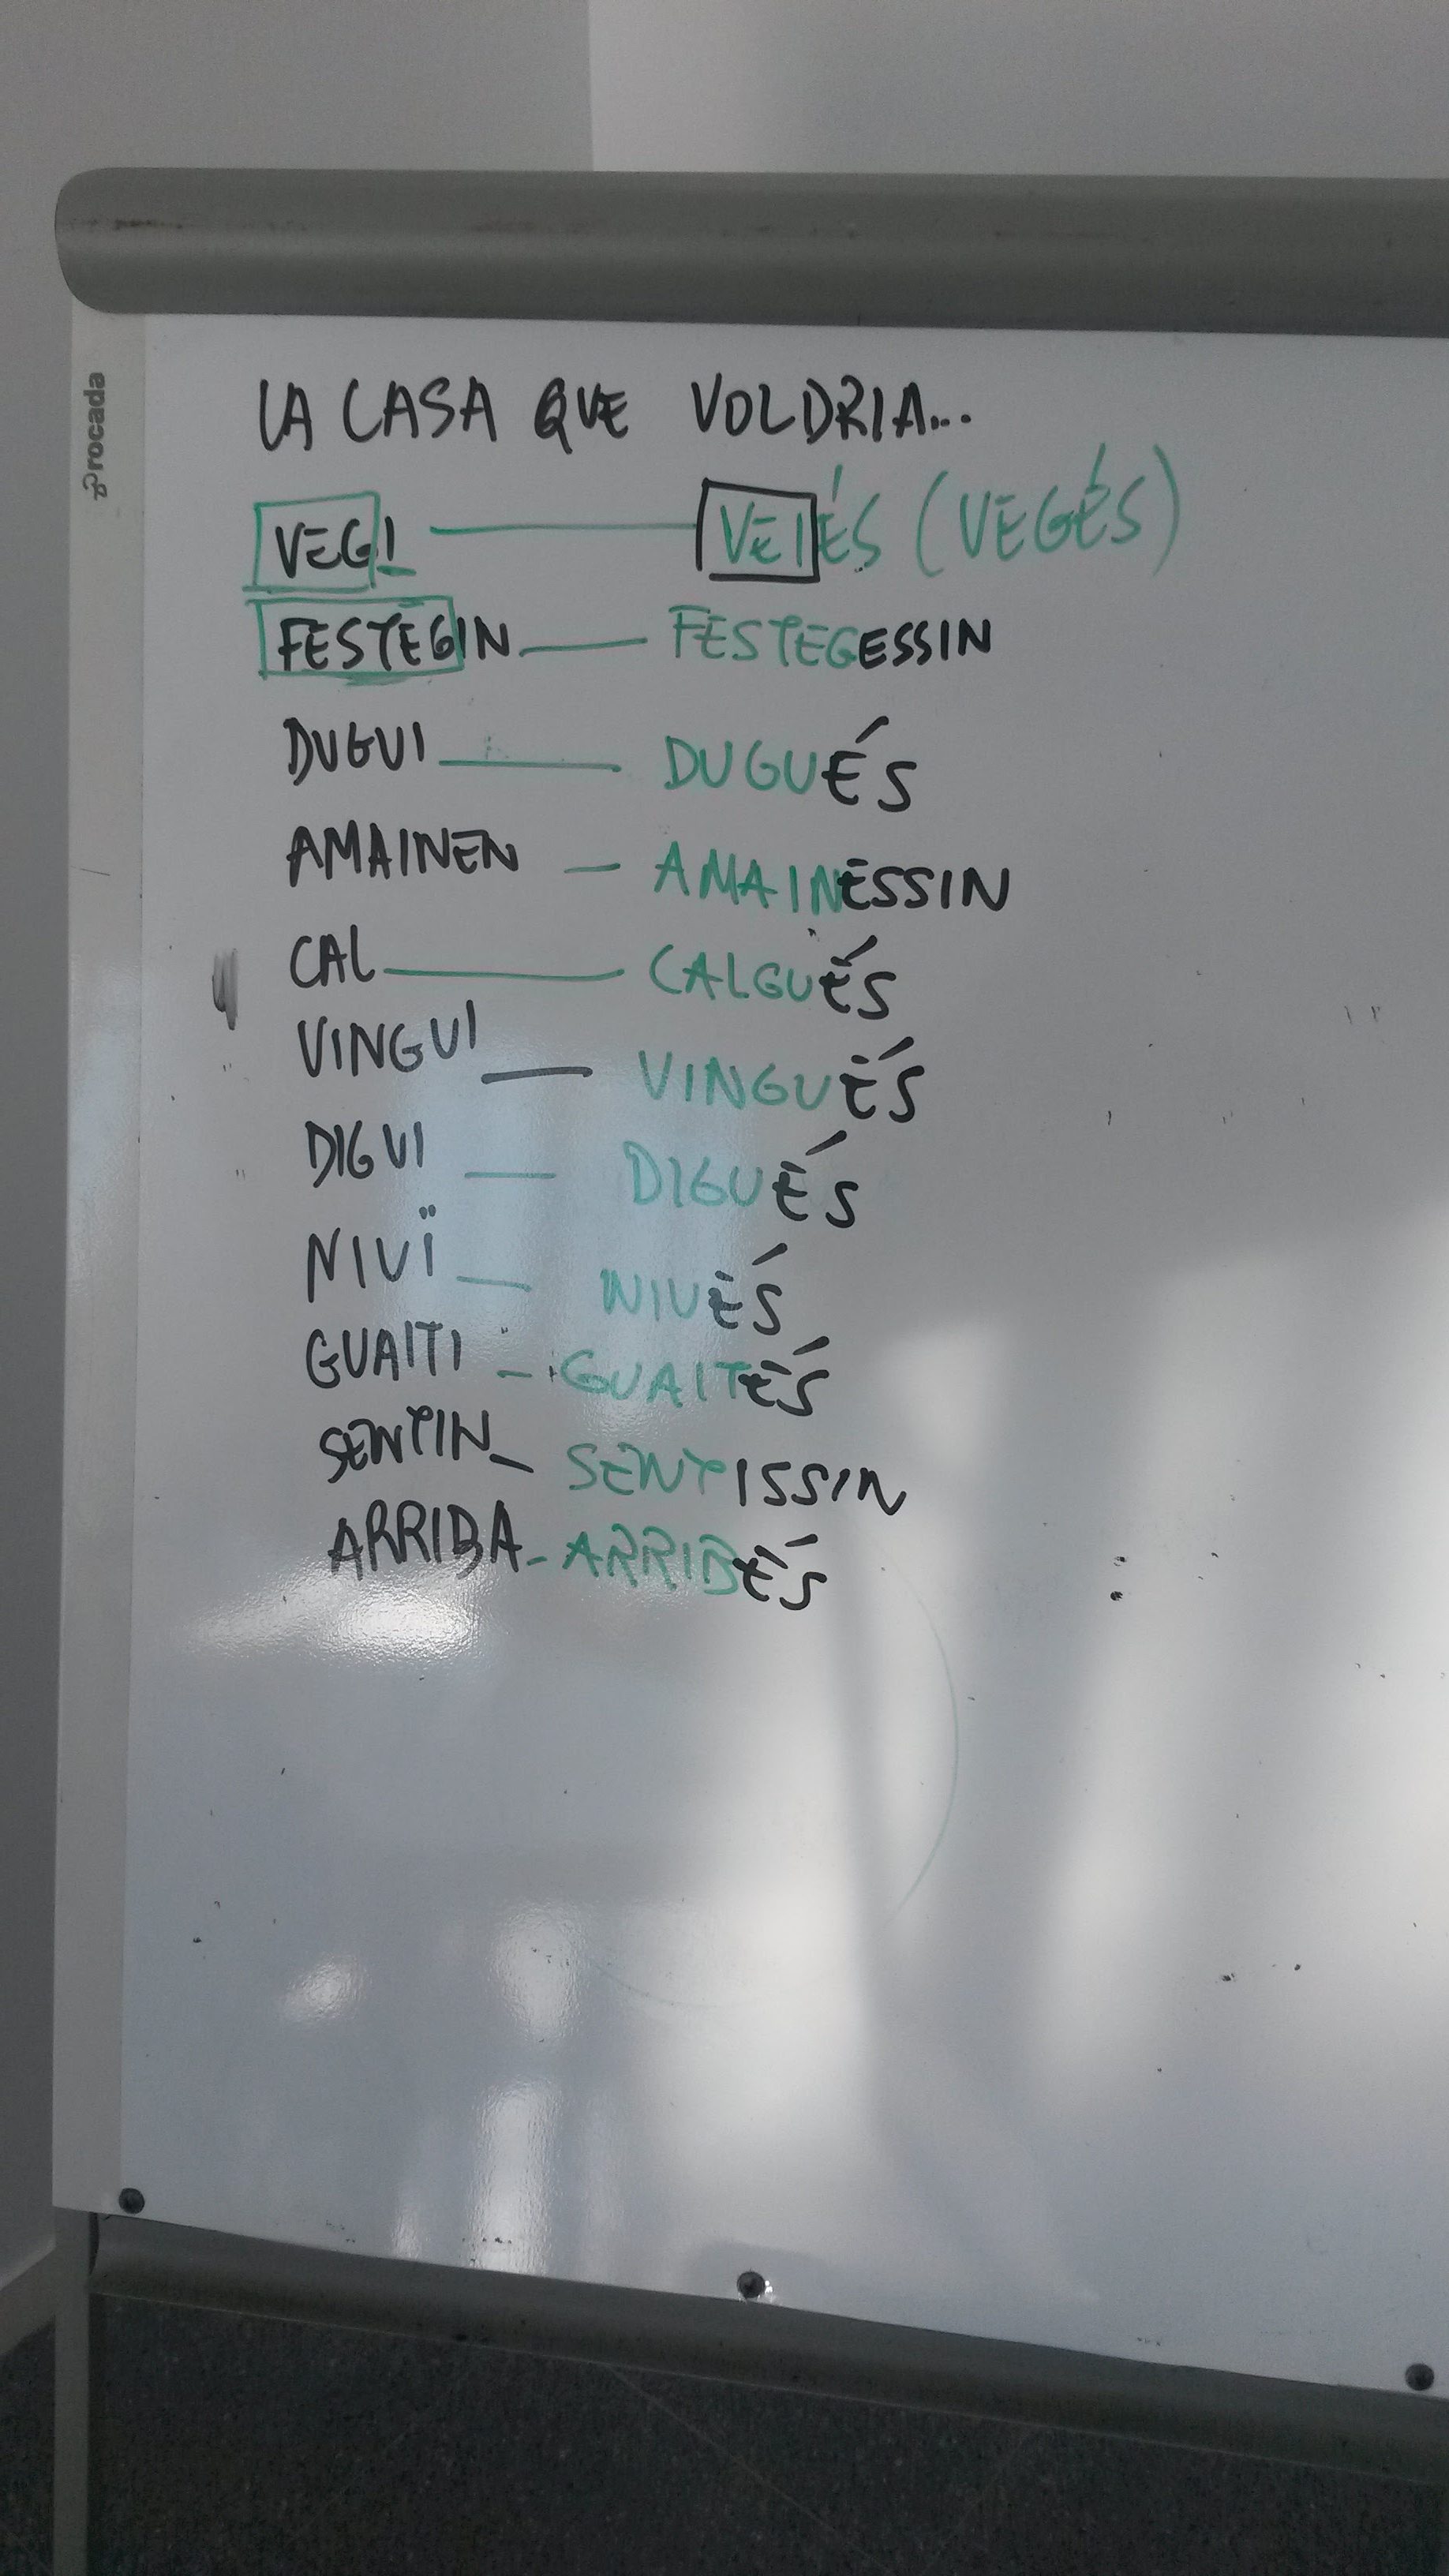 rocada
LA CASA QUE VOLDRIA...
VEGI — VEIÉS (VEGÉS)
FESTEGIN — FESTEGESSIN
DUGUI — DUGUÉS
AMAINEN — AMAINESSIN
CAL — CALGUÉS
VINGUI — VINGUÉS
DIGUI — DIGUÉS
NIUÏ — NIUÉS
GUAITI — GUAITÉS
SENTIN — SENTISSIN
ARRIBA - ARRIBÉS